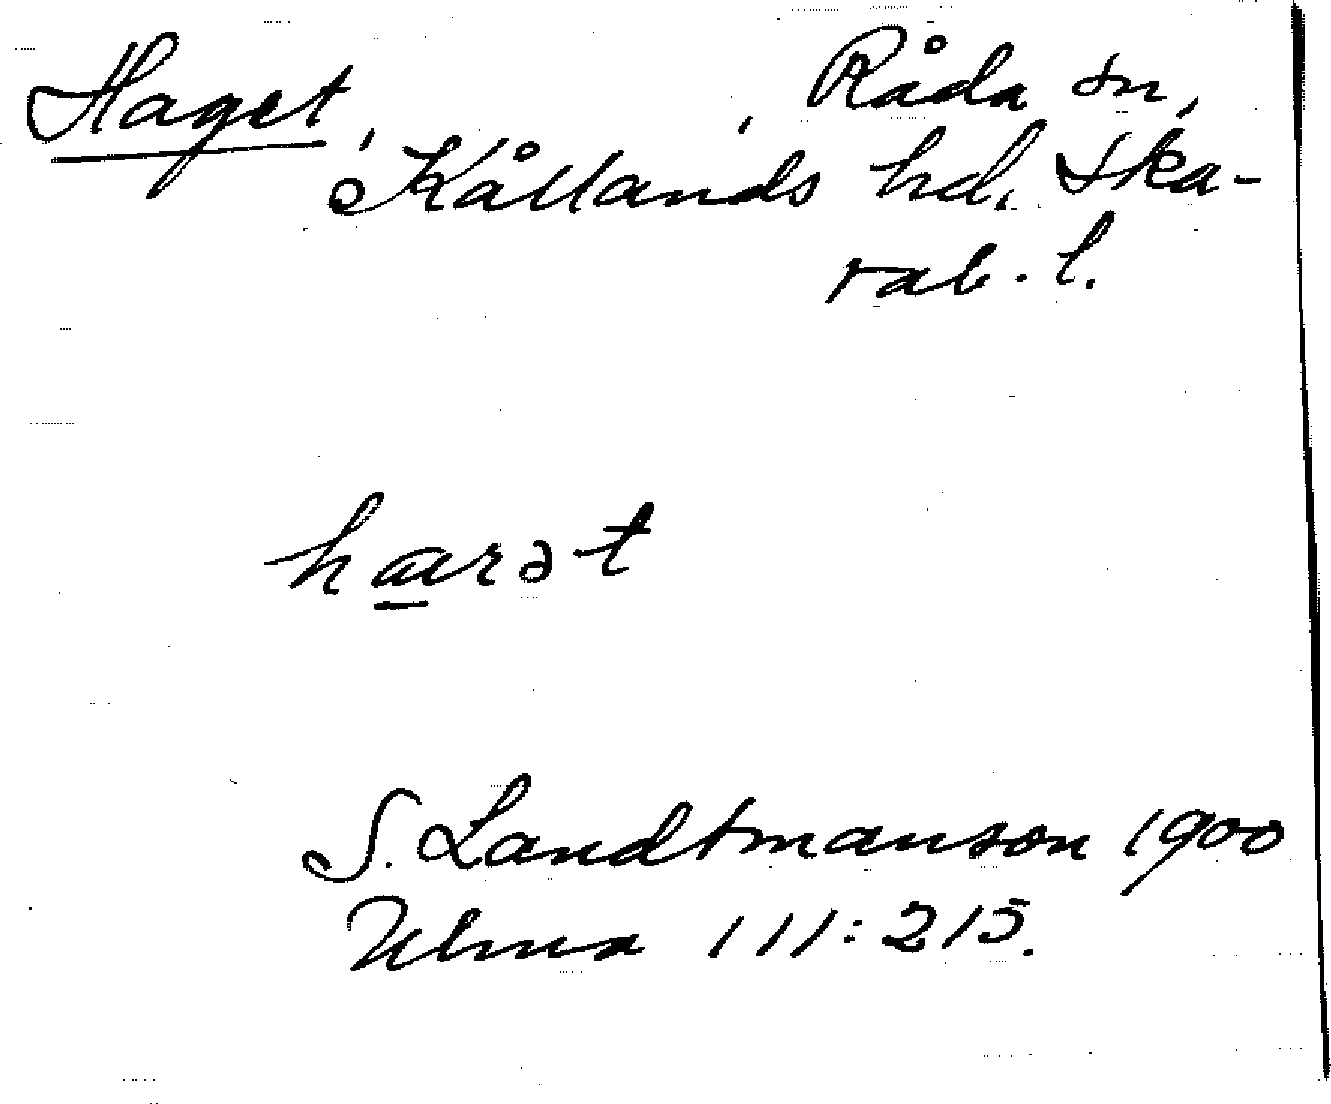 Haget, , Råda sn,
Kållands hd, Ska-
rab. l.
harət
S. Landtmanson 1900
Ulma 111:215.